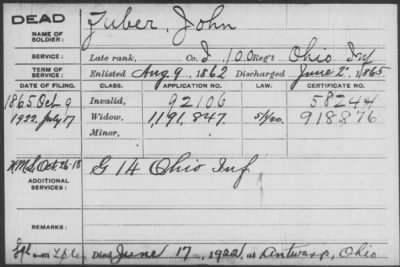 DEAD
NAME OF SOLDIER: Zuber, John
SERVICE: Late rank, Co. I, 100 Reg't Ohio Inf
TERM OF SERVICE: Enlisted Aug 9, 1862 Discharged June 2, 1865
DATE OF FILING. CLASS. APPLICATION NO. LAW. CERTIFICATE NO.
1865 Oct 9 Invalid, 92106 58244
1922. July 17 Widow, 1,191,847. 918876
Minor,
Oct. 26-18
G 14 Ohio Inf.
ADDITIONAL SERVICES:
REMARKS:
Died June 17, 1922, at Antwerp, Ohio